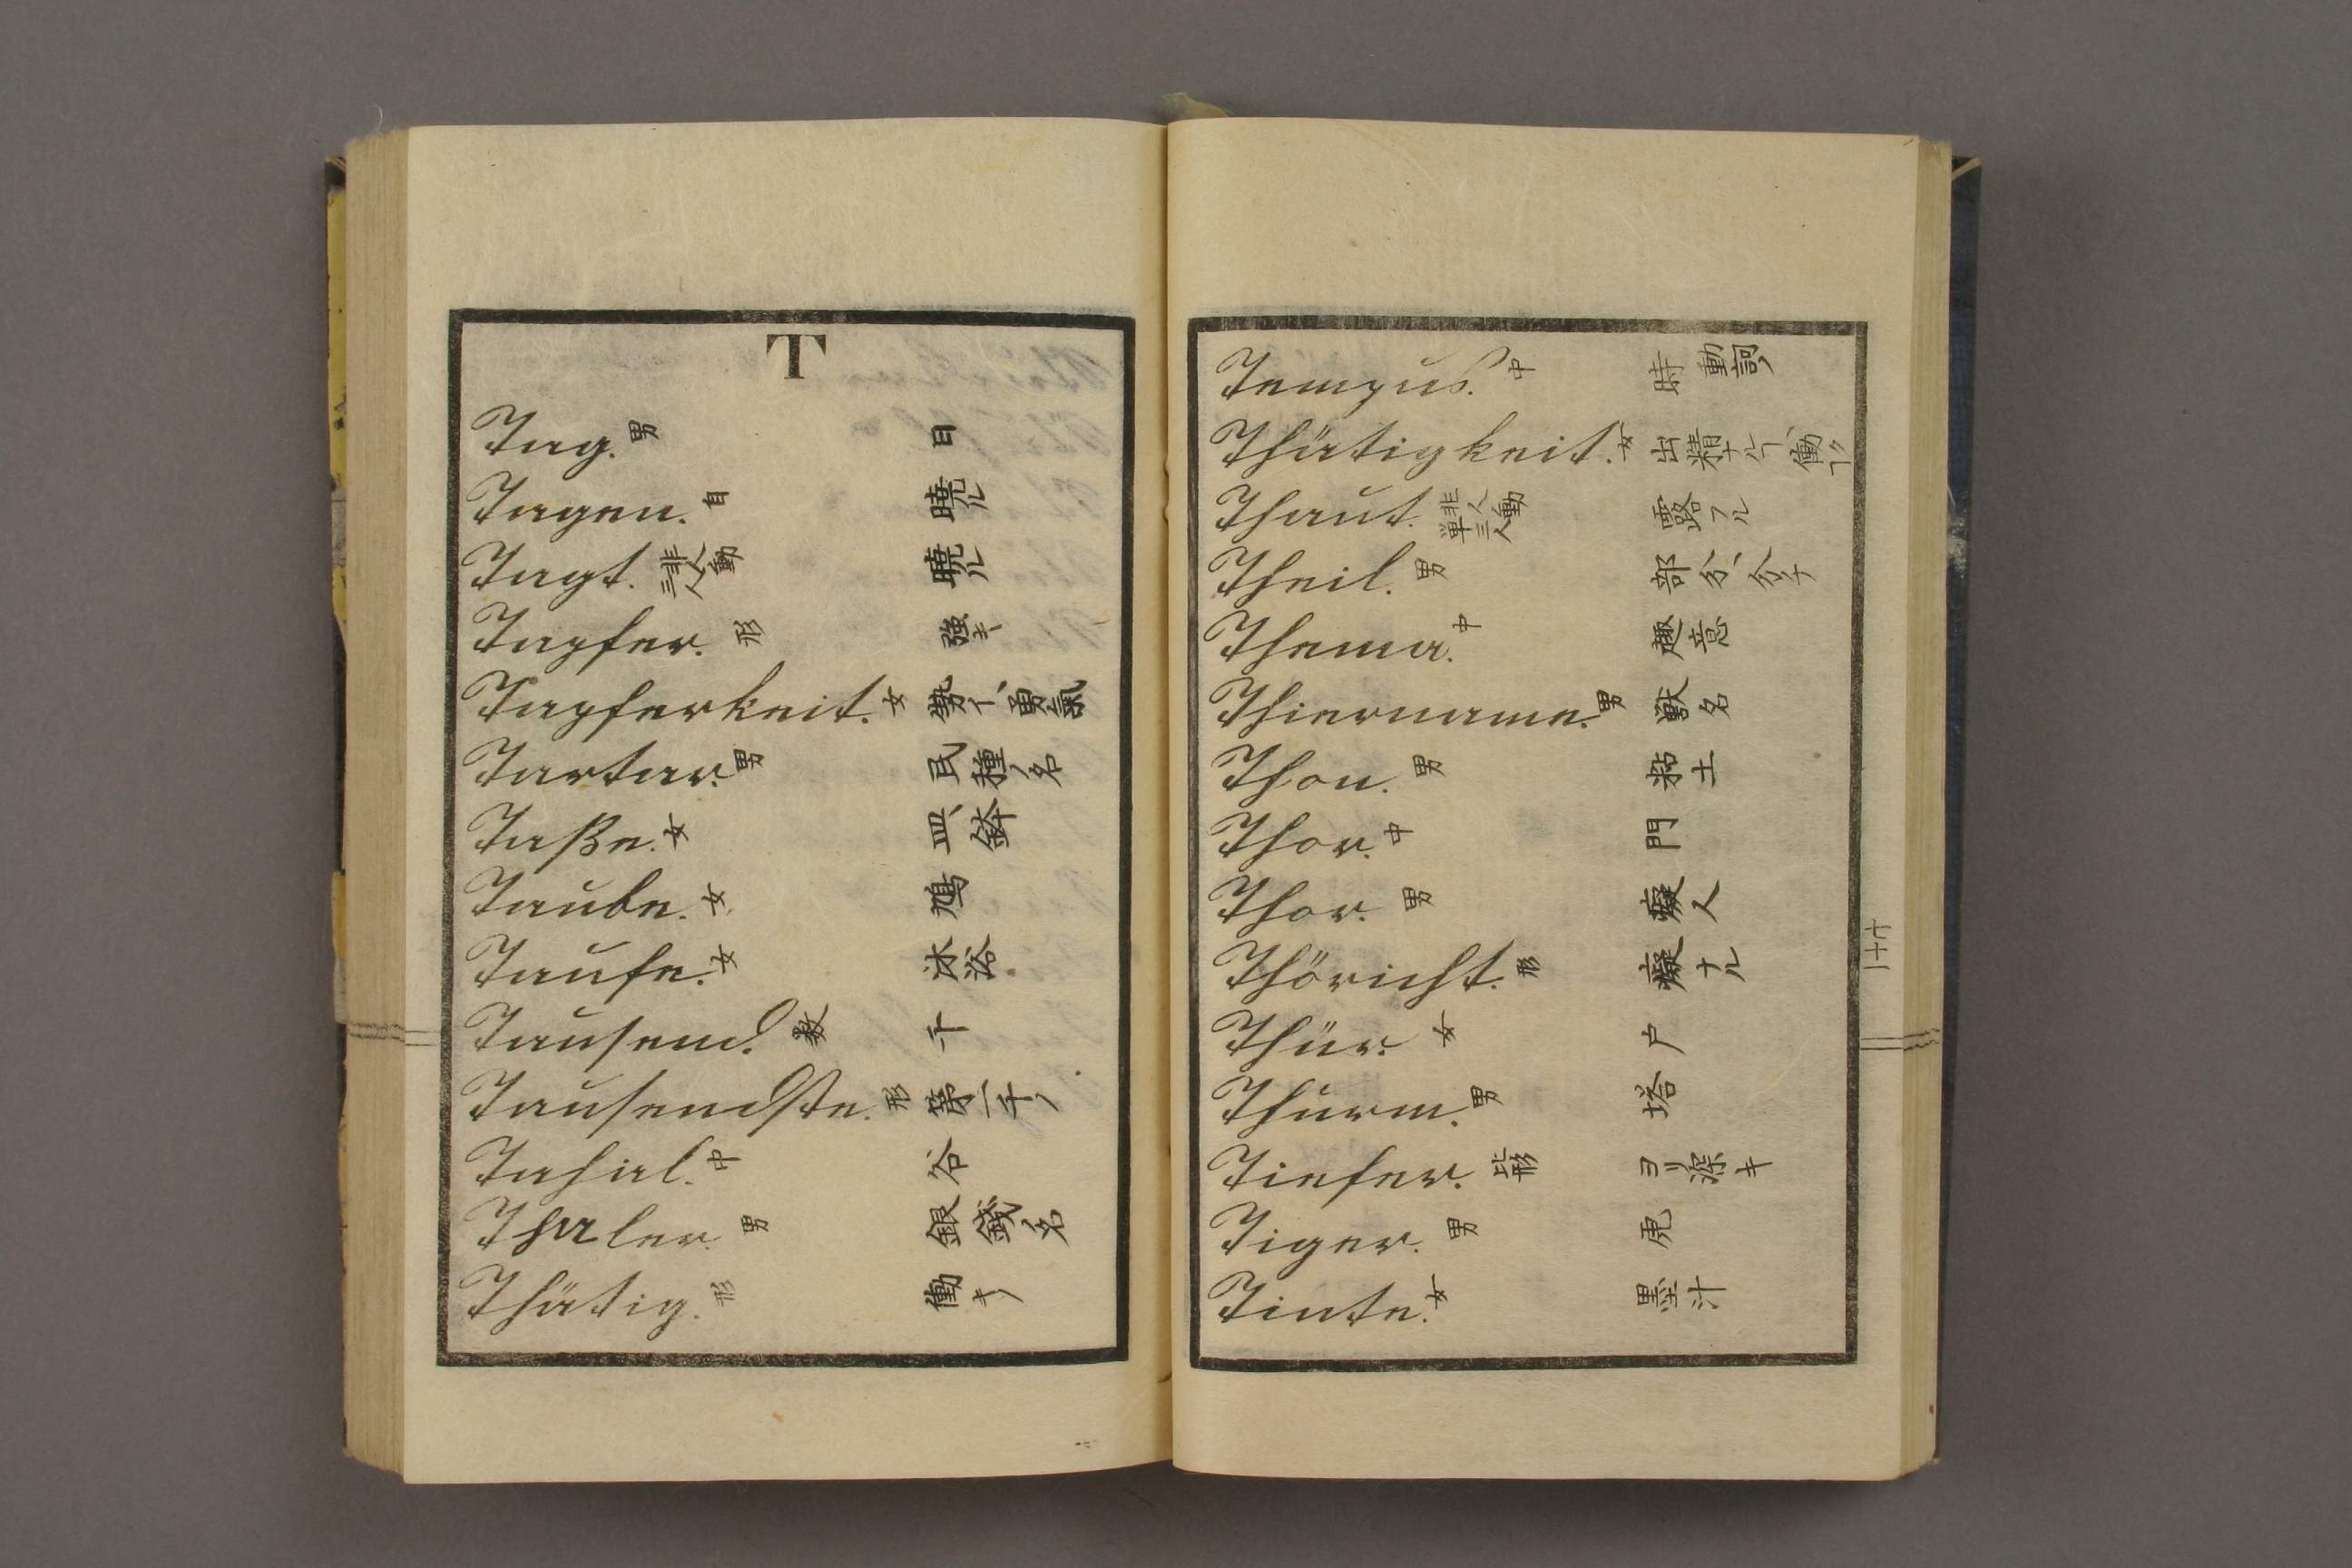 T
Tag. 男 日
Tagen. 自 曉ル
Tagt. 非人動三人 曉ル
Tapfer. 形 強キ
Tapferkeit. 女 勢イ、勇氣
Tartar. 男 民種ノ名
Taße. 女 皿、鉢
Taube. 女 鳩
Taufe. 女 沐浴
Tausend. 数 千
Tausendste. 形 第一千ノ
Tahal. 中 谷
Thaler. 男 銀錢ノ名
Thätig. 形 働キノ
Tempus. 中 時 動詞ノ
Thätigkeit. 女 出精ナルヿ、働クヿ
Thaut. 非人動単三人 露フル
Theil. 男 部分、分チ
Thema. 中 趣意
Thiername. 男 獣名
Thon. 男 粘土
Thor. 中 門
Thor. 男 癡人
Thöricht. 形 癡ナル
Thür. 女 戸
Thurm. 男 塔
Tiefer. 比形 ヨリ深キ
Tiger. 男 虎
Tinte. 女 墨汁